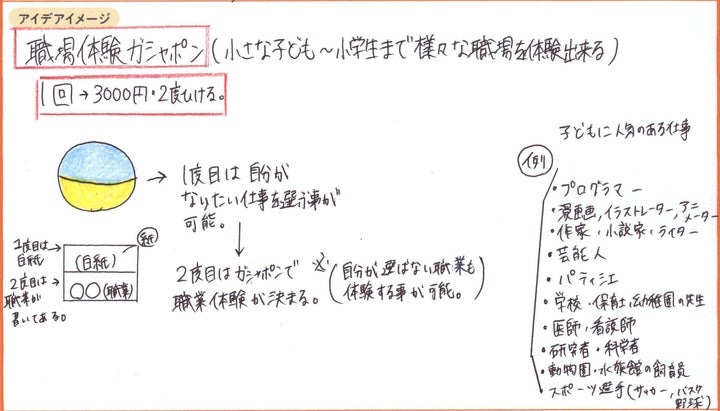 アイデアイメージ
職場体験ガシャポン(小さな子ども〜小学生まで様々な職場を体験出来る)
1回→3000円・2度ひける。
→1度目は自分が
なりたい仕事を選ぶ事が
可能。
2度目はガシャポンで
職業体験が決まる。
(自分が選ばない職業も
体験する事が可能。)
1度目は
白紙
2度目は
職業が
書いてある。
紙
(白紙)
○○(職業)
子どもに人気のある仕事
例
・プログラマー
・漫画画,イラストレーター,アニメーター
・作家・小説家・ライター
・芸能人
・パティシエ
・学校・保育士,幼稚園の先生
・医師・看護師
・研究者・科学者
・動物園・水族館の飼育員
・スポーツ選手(サッカー,バスケ
野球)